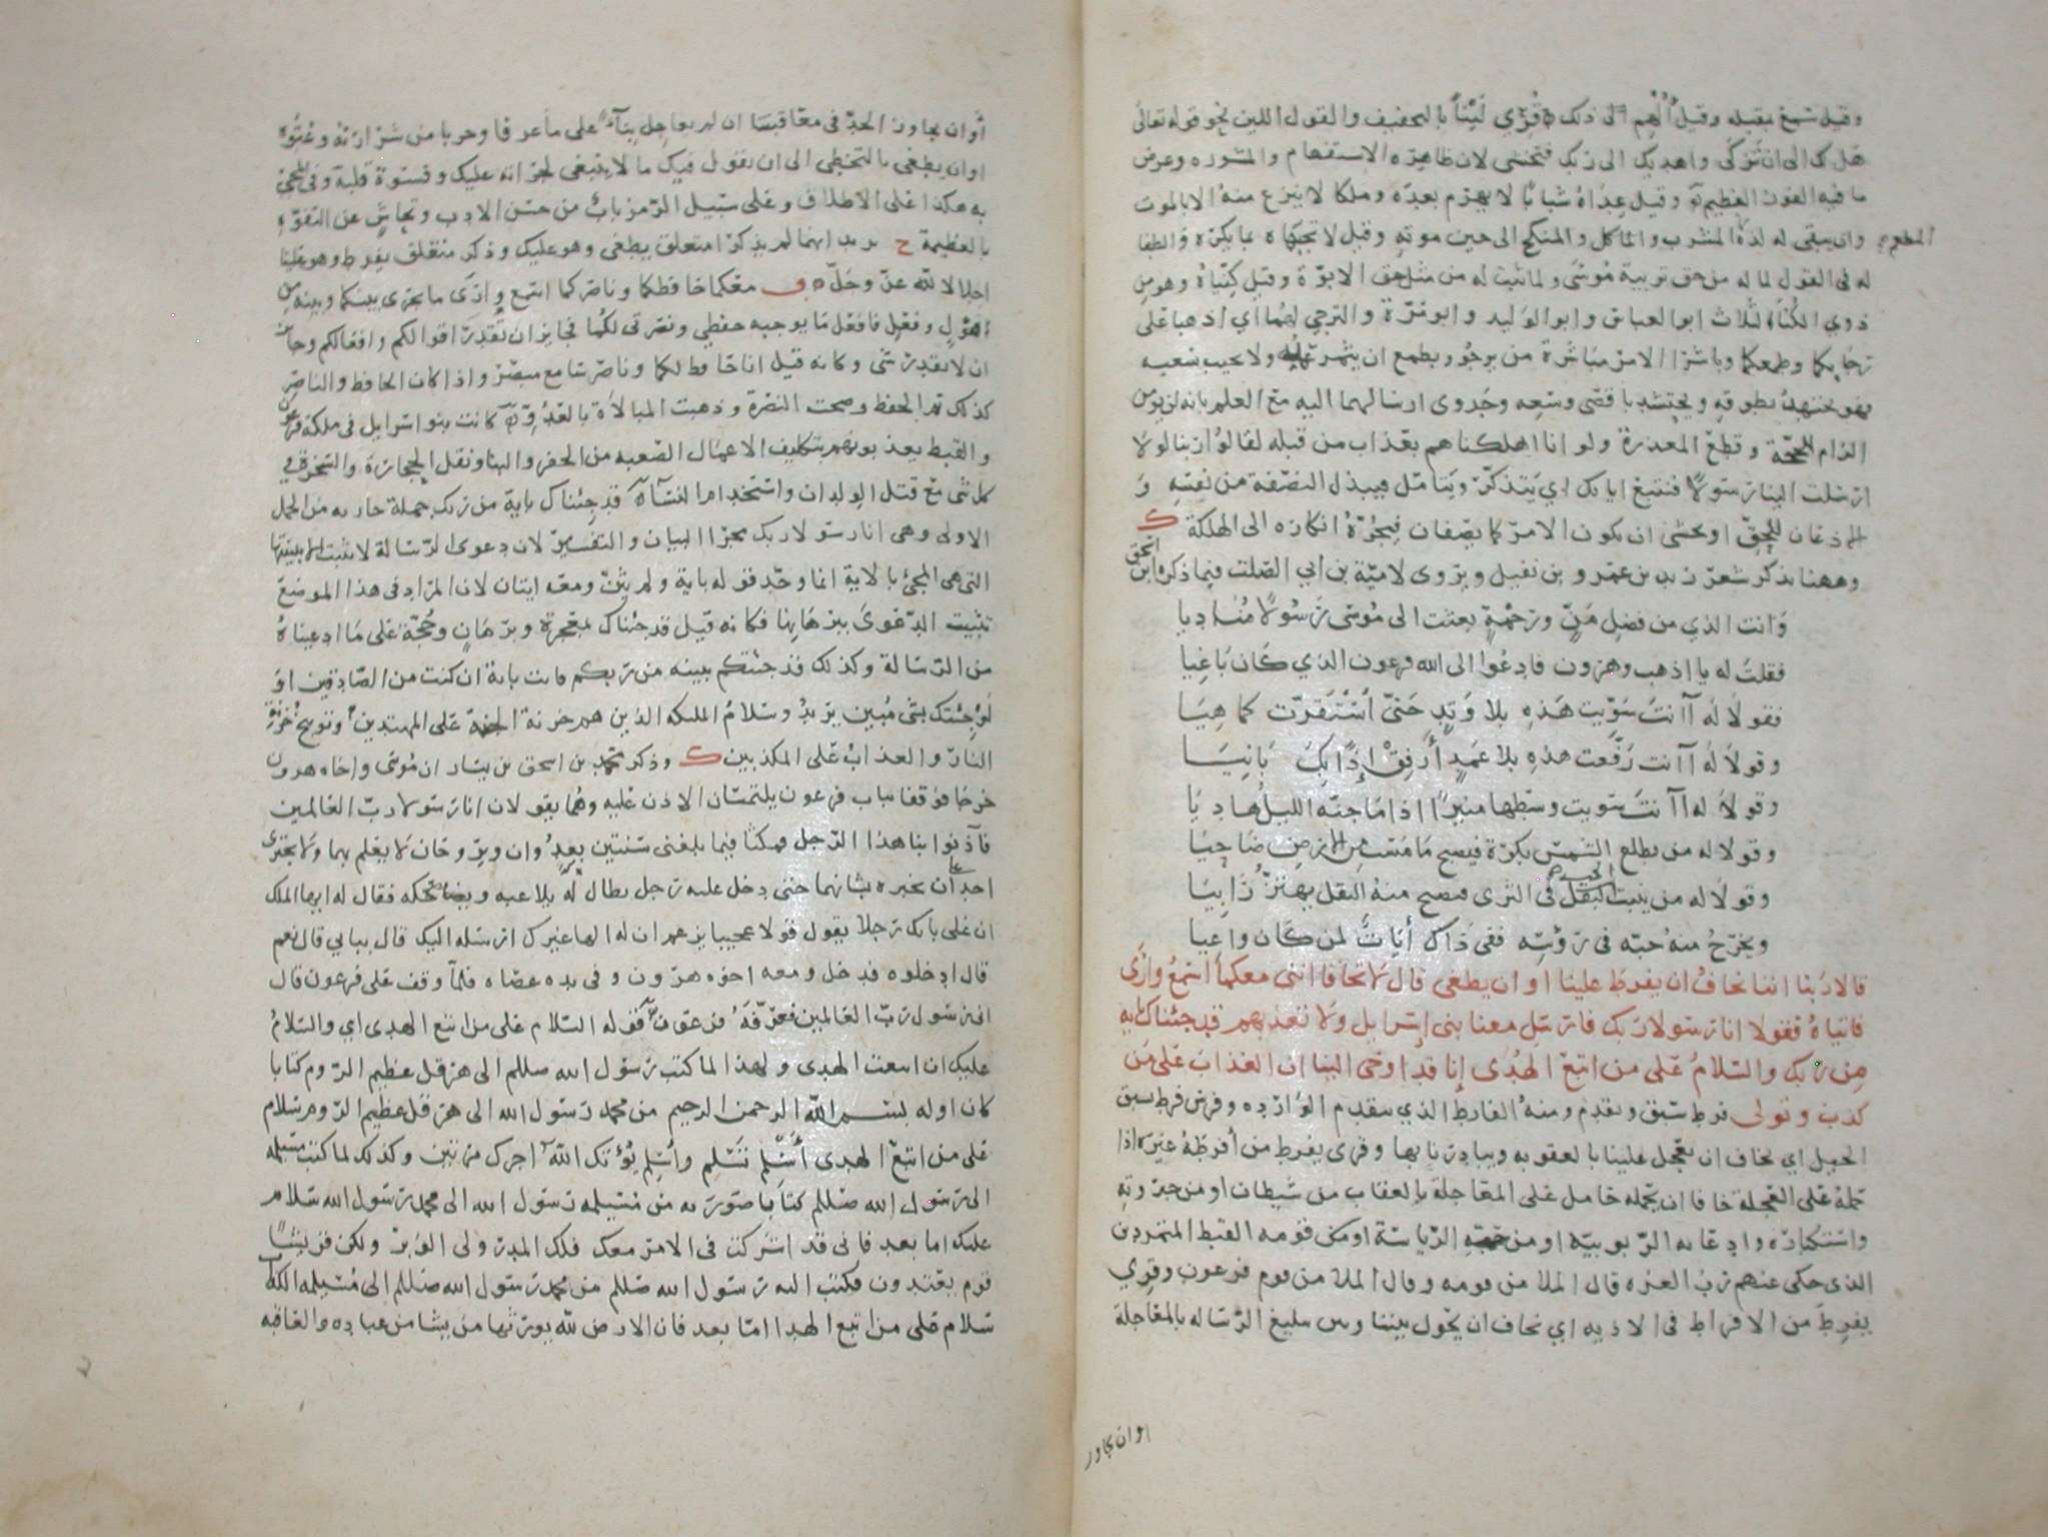 وقيل سمع بقبله وقيل ألهم الى ذلك ۞ قُرِّي لَيْنًا بالتخفيف والقول اللين نحو قوله تعالى
هل لك الى ان تزكى واهديك الى ربك فتخشى لان ظاهره الاستفهام والمشوره وعرض
ما فيه الفوز العظيم ۞ وقيل عِدَاهُ شبابًا لا يهرم بعده وملكا لا ينزع منه الا بالموت
وان يبقى له لذة المشرب والماكل والمنكح الى حين موته وقيل لا تجبهاه بما يكره والطفا
المطعوم
له في القول لما له من حق تربية موسى ولما ثبت له من مثل حق الابوّة وقيل كنّياهُ وهو من
ذوي الكُنَا الثلاث ابو العباس وابو الوليد وابو مُرّة والترجي لهما اي اذهبا على
رجايكما وطمعكما وباشرا الامر مباشرة من يرجو ويطمع ان يثمر عمله ولا يخيب سعيه
فهو يجتهد بطوقه ويحتشد باقصى وسعه وجدوى ارسالهما اليه مع العلم بانه لن يومن
الزام الحجّة وقطع المعذرة ولو انا اهلكناهم بعذاب من قبله لقالوا ربنا لولا
ارسلت الينا رسولًا فنتبع اياتك اي يتذكّر ويتامّل فيبذل النصَفة من نفسه و
الاذعان للحقّ او يخشى ان يكون الامر كما يصفان فيجرّه انكاره الى الهلكة ك
وههنا نذكر شعر زيد بن عمرو بن نفيل ويروى لاميّة بن ابي الصّلت فيما ذكره ابن اسحق
وانت الذي من فضل مَنٍّ ورحمةٍ بعثت الى موسى رسولًا مُناديا
فقلت له يا اذهب وهرون فادعُوا الى الله فرعون الذي كان باغيا
فقولا له آانت سَوّيت هَذهِ بلا وَتِدٍ حَتّى اسْتَقرّت كما هِيَا
وقولا له آانت رفّعت هذه بلا عَمَدٍ أَرفِقْ إِذًا بِكَ بَانِيَا
وقولا له آانت سويت وسطها منيرًا اذا ما جنّه الليلُ هاديًا
وقولا له من يطلع الشمس بكرة فيصبح ما مسّت من الارض ضاحيًا
وقولا له من ينبت الحب في الثرى فيصبح منه البقل يهتزّ رابيا
ويخرج منه حبّه في رؤسه ففي ذاك أياتٌ لمن كان واعيا
قالا ربّنا اننا نخاف ان يفرط علينا او ان يطغى قال لا تخافا انني معكما اسمع وارى
فاتياه فقولا انا رسولا ربك فارسل معنا بني اسرايل ولا تعذبهم قد جئناك بايه
من ربك والسّلام على من اتبع الهُدى إنا قد اوحي الينا ان العذاب على من
كذب وتولى فرط سبق وتقدم ومنه الفارط الذي يتقدم الوارده وفرس فرط يسبق
الخيل اي نخاف ان يعجل علينا بالعقوبه ويبادرنا بها وقرى يفرط من أفرطهُ غيره اذا
حمله على العجلة خافا ان يحمله حامل على المعاجلة بالعقاب من شيطان او من جبروته
واستكباره وادعايه الربوبيّه او من حبّه الرّياسة او من قومه القبط المتمردين
الذى حكى عنهم ربّ العزه قال الملا من قومه وقال الملا من قوم فرعون وقري
يفرط من الافراط في الاذيه اي نخاف ان يحول بيننا وبين تبليغ الرّساله بالمعاجلة
او ان يجاوز
أو ان يجاوز الحدّ في معاقبتنا ان لم يعاجل بناءً على ما عرفا وجربا من شرارته وعُتُوّه
او ان يطغى بالتخطّي الى ان يقول فيك ما لا ينبغي لجراته عليك وقسوة قلبه وفي المجيْ
به هكذا على الاطلاق وعلى سبيل الرّمز بابٌ من حسن الادب وتحاشٍ عن التفوّه
بالعظيمة ح يريد انهما لم يذكرا متعلق يطغى وهو عليك وذكر متعلق يفرط وهو علينا
اجلالا لله عزّ وجلّ ۞ ف معكما حافظكما وناصركما اسمع وارى ما يجري بينكما وبينه من
قول وفعل فافعل ما يوجبه حفظي ونصرتى لكما فجايز ان تقدر اقوالكم وافعالكم وجائز
ان لا يقدر شى وكانه قيل انا حافظ لكما وناصر سامع مبصر واذا كان الحافظ والناصر
كذلك تم الحفظ وصحت النصرة وذهبت المبالاة بالعدُوِّ ۞ كانت بنو اسرايل في ملكة فرعون
والقبط يعذبونهم بتكليف الاعمال الصّعبه من الحفر والبنا ونقل الحجارة والسخرة في
كل شى مع قتل الولدان واستخدام النسآء ۞ قد جئناك باية من ربك جملة جاريه من الجمل
الاولى وهي انا رسولا ربك مجرا البيان والتفسير لان دعوى الرّسالة لا تثبت الا ببينتها
التي هي المجئ بالاية انما وحّد قوله باية ولم يثنّ ومعه ايتان لان المرّاد في هذا الموضع
تثبيت الدّعوى ببرهانها فكانه قيل قد جئناك بمعجزة وبرهانٍ وحُجّة على ما ادعيناهُ
من الرّسالة وكذلك قد جئتكم ببينه من ربكم فات باية ان كنت من الصّادقين او
لو جئتك بشى مبين يريد وسلام الملئكه الذين هم خزنة الجنة على المهتدين وتوبيخ خزنة
النار والعذاب على المكذبين ك وذكر محمد بن اسحق بن يسار ان موسى واخاه هرون
خرجا فوقفا بباب فرعون يلتمسان الاذن عليه وهما يقولان انا رسولا ربّ العالمين
فآذنوا بنا هذا الرّجل فمكثا فيما بلغني سنتين يغدُوان ويروحان لا يعلم بهما ولا يجترى
احد على ان يخبره بشانهما حتى دخل عليه رجل بطال لهُ يلاعبه ويضحكه فقال له ايها الملك
ان على بابك رجلا يقول قولا عجيبا يزعم ان له الها غيرك ارسله اليك قال ببابي قال نعم
قال ادخلوه فدخل ومعه اخوه هرون وفي يده عصاه فلما وقف على فرعون قال
اني رسول ربّ العالمين فعرّفَهُ فرعون ۞ قوله السّلام على من اتبع الهدى اي والسّلامُ
عليك ان اتبعت الهدى ولهذا لما كتب رسول الله صللم الى هرقل عظيم الرّوم كتابا
كان اوله بسم الله الرحمن الرحيم من محمد رسول الله الى هرقل عظيم الرّوم سلام
على من اتبع الهدى أَسْلِم تَسْلم وأسلِم يُؤتك اللهُ اجرك مرتين وكذلك لما كتب مسيلمه
الى رسول الله صللم كتابا صورته من مسيلمه رسول الله الى محمد رسول الله سلام
عليك اما بعد فاني قد اشركت في الامر معك فلك المدر ولي الوبر ولكن قريشًا
قوم يعتدون فكتب اليه رسول الله صللم من محمد رسول الله صللم الى مسيلمه الكذاب
سلام على من اتبع الهدا امّا بعد فان الارض لله يورثها من يشا من عباده والعاقبه